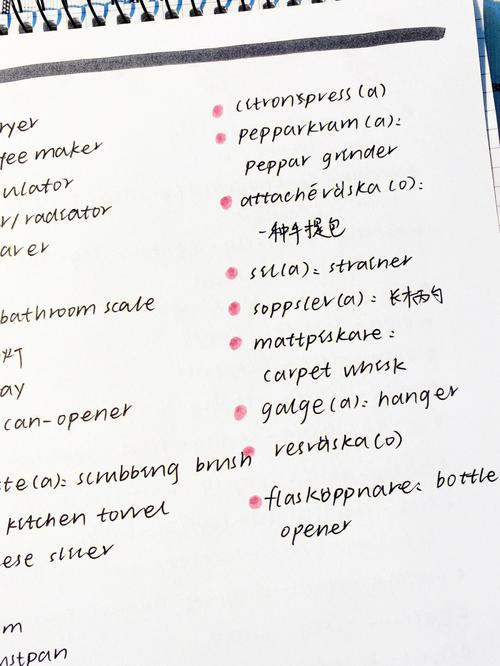 ryer
fee maker
ulator
r/radiator
aver
bathroom scale
灯
ay
can-opener
te(a): scrubbing brush
kitchen towel
ese slicer
m
ustpan
citronspress(a)
pepparkvarn(a):
peppar grinder
attachéväska(o):
一种手提包
sil(a): strainer
soppslev(a): 长柄勺
mattpiskare:
carpet whisk
galge(a): hanger
resväska(o)
flasköppnare: bottle
opener